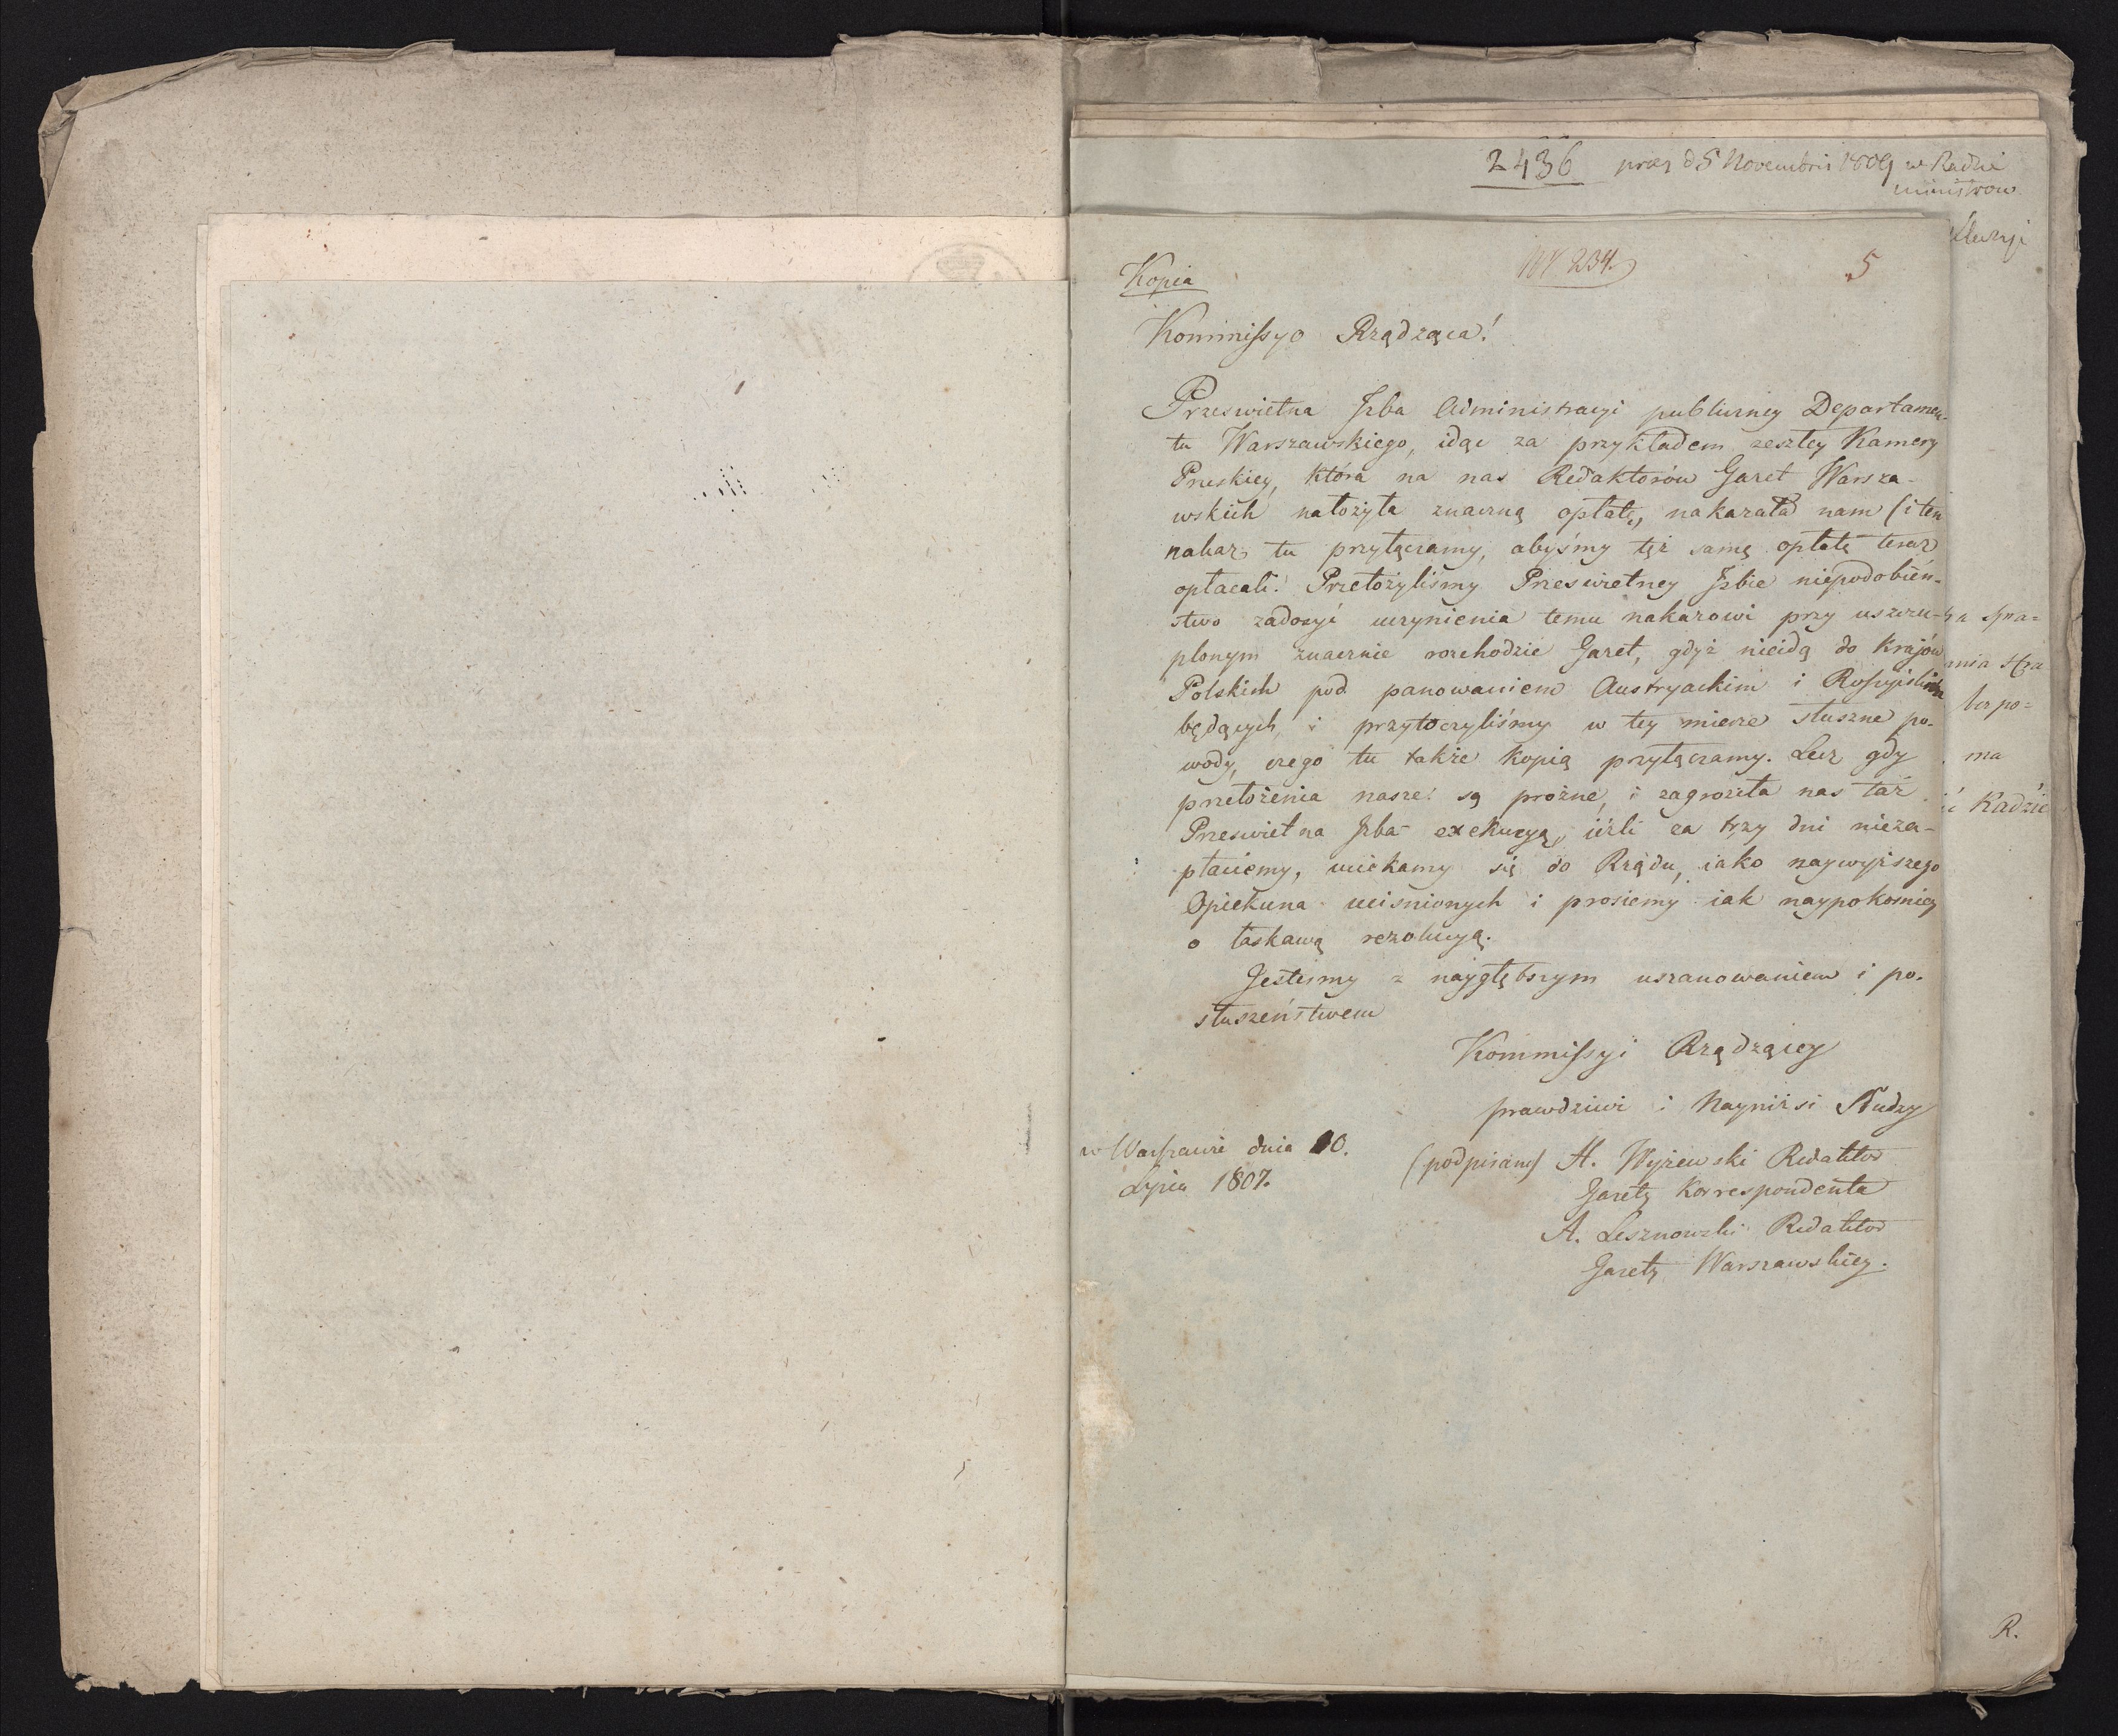 2436 præs d 5 Novembris 1809 w Radzie
Ministrow
Kopia
N 234.
5
Kommissyo Rządząca!
Przeswietna Izba Administracyi publiczney Departamen-
tu Warszawskiego, idąc za przykładem zeszłey Kamery
Pruskiey, która na nas Redaktorów Gazet Warsza-
wskich nałożyła znaczną opłatę, nakazała nam (i ten
nakaz tu przyłączamy, abyśmy tęż samę opłatę teraz
opłacali. Przełożyliśmy Przeswietney Izbie niepodobień-
stwo zadosyć uczynienia temu nakazowi przy uszczu-
plonym znacznie rozchodzie Gazet, gdyż nieidą do Krajów
Polskich pod panowaniem Austryackim i Rossyiskim
będących, i przytoczyliśmy w tey mierze słuszne po-
wody, czego tu także kopią przyłączamy. Lecz gdy
przełożenia nasze są prożne, i zagroziła nas taż
Przeswietna Izba exekucyą, ieżli za trzy dni nieza-
płaciemy, uciekamy się do Rządu, iako naywyższego
Opiekuna ucisnionych i prosiemy iak naypokorniey
o łaskawą rezolucyą.
Jestesmy z naygłębszym uszanowaniem i po-
słuszeństwem
Kommissyi Rządzącey
prawdziwi i Nayniżsi Słudzy
w Warszawie dnia 10.
Lipca 1807.
(podpisano) H. Wyżewski Redaktor
Gazety Korrespondenta
A. Lesznowski Redaktor
Gazety Warszawskiey.
ma
Radzie
R.